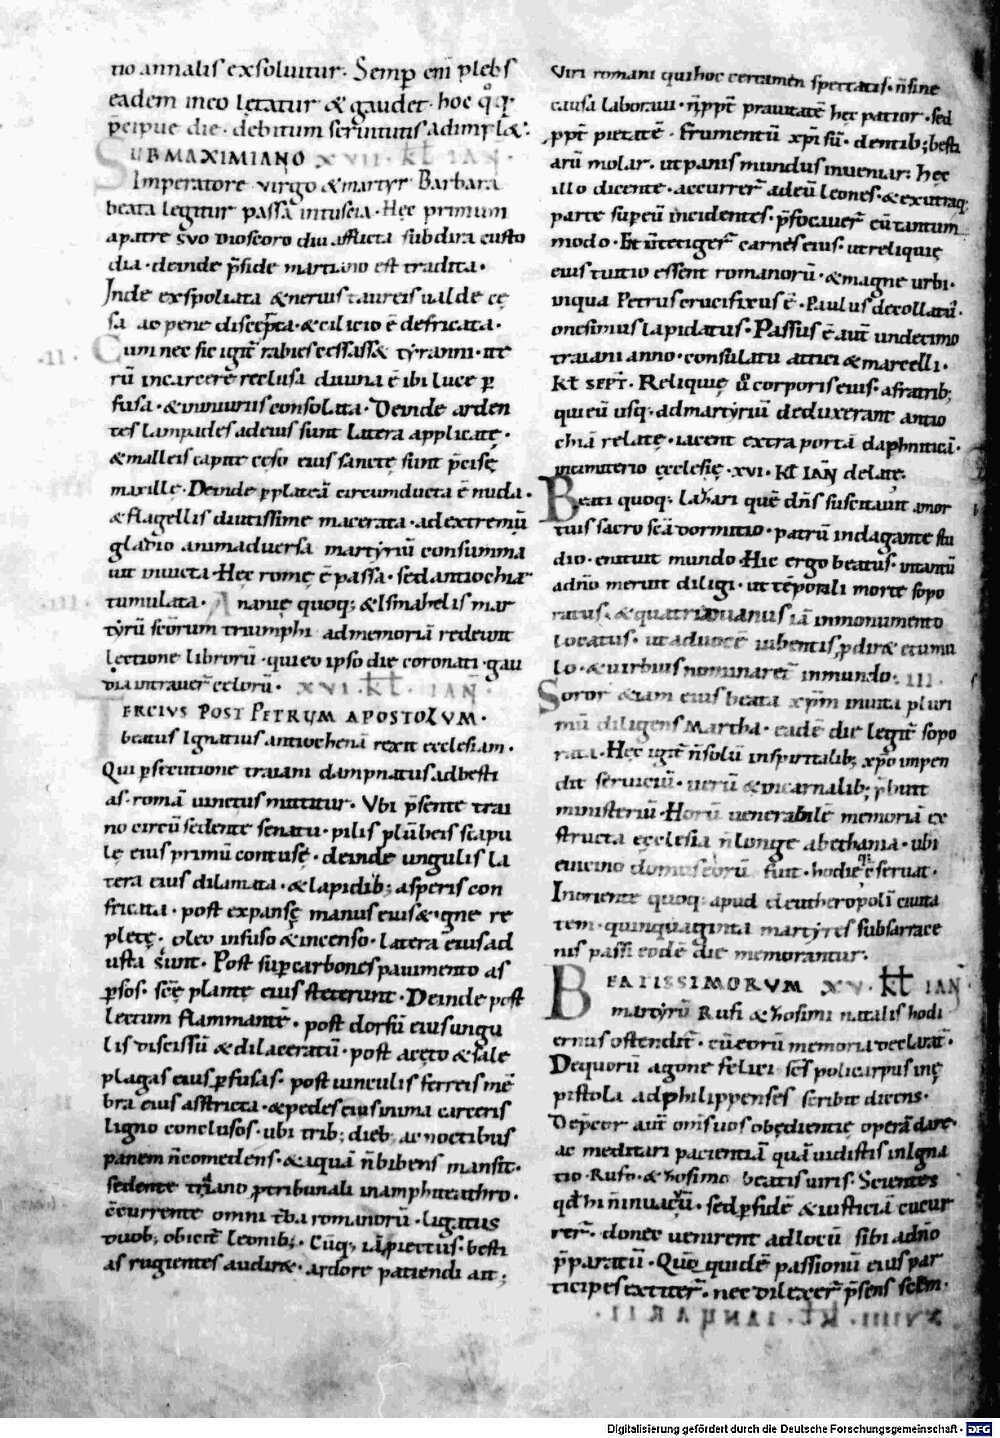 tio annalis exsoluitur. Semp̄ eni̅ plebs
eadem in eo lętatur & gaudet. hoc q͛q;
p̄cipue die. debitum seruitutis adimpl&.
SUB MAXIMIANO XVII. kł IAN̄.
Imperatore virgo & martyr Barbara
beata legitur passa in tuscia. Hęc primum
a patre suo Dioscoro diu afflicta sub dira custo
dia. deinde p̄side martiano est tradita.
Inde expoliata & neruis taureis ualde cę
sa ac pene discerpta. & cilicio ē defricata.
.II. Cum nec sic igit̄ rabies cessass& tyranni. ite
rū in carcere reclusa diuina ē ibi luce p̱
fusa. & iniuriis consolata. Deinde arden
tes lampades ad eius sunt latera applicatę.
& malleis capite cęso eius sanctę sunt p̄cisę
maxillę. Deinde p̱ plateā circumducta ē nuda.
& flagellis diutissime macerata. ad extremū
gladio animaduersa martyriū consumma
uit inuicta. Hęc romę ē passa. sed antiochiae
.III. tumulata. Ananię quoq; & Ismahelis mar
tyrū sc̄orum triumphi ad memoriā redeunt
lectione librorū. qui eo ipso die coronati. gau
dia intrauer̄ celorū. XVI. kł. IAN̄.
TERCIUS POST PETRUM APOSTOLUM.
beatus Ignatius antiochenā rexit ecclesiam.
Qui p̱secutione traiani dampnatus ad besti
as. romā uinctus mittitur. Ubi p̄sente trai
no circū sedente senatu. pilis plūbeis scapu
lę eius primū contusę. deinde ungulis la
tera eius dilaniata. & lapidib; asperis con
fricata. post expansę manus eius & igne re
pletę. oleo infuso & incenso. latera eius ad
usta sunt. Post sup̱ carbones pauimento as
p̱sos. sc̄ę plantę eius steterunt. Deinde post
lectum flammantē. post dorsū eius ungu
lis discissū & dilaceratū. post acęto & sale
plagas eius p̱fusas. post uinculis ferreis mē
bra eius astricta. & pedes eius in ima carceris
ligno conclusos. ubi trib; dieb; ac noctibus
panem n̄ comedens. & aquā n̄ bibens mansit.
sedente traiano p̱ tribunali in amphiteathro.
c̄currente omni t̄ba romanorū. ligatus
duob; obicit̄ leonib;. Cūq; iā p̱iectus. besti
as rugientes audir&. ardore patiendi ait;
Viri romani qui hoc certamen spectatis. n̄ sine
causa laboraui. n̄ ppt̄ prauitatē hęc patior. sed
ppt̄ pietatē. frumentū xp̄i sū. dentib; besti
arū molar. ut panis mundus inueniar. hęc
illo dicente. accurrer̄ ad eū leones. & ex utraq;
parte sup̱ eū incidentes. p̄focauer̄ eū tantum
modo. Et n̄ tetiger̄ carnes eius. ut reliquię
eius tuitio essent romanorū. & magnę urbi.
in qua Petrus crucifixus ē. Paulus decollatus.
onesimus lapidatus. Passus ē aut̄ undecimo
traiani anno. consulatu attici & marcelli.
kł sept̄. Reliquię u̅ corporis eius. a fratrib;
qui eū usq; ad martyriū deduxerant antio
chiā relatę. iacent extra portā daphniticā.
in cimiterio ęcclesię. XVI. kł IAN̄ delatę.
Beati quoq; lazari quē dn̄s suscitauit a mor
tuis sacro sc̄a dormitio. patrū indagante stu
dio. enituit mundo. Hic ergo beatus. in tantū
a dn̄o meruit diligi. ut tēporali morte sopo
ratus. & quatriduanus iā in monumento
locatus. ut ad uocē iubentis, p̱dir& e tumu
lo. & uirbius nominaret̄ in mundo. .III.
Soror etiam eius beata xp̄m inuita pluri
mū diligens Martha. eadē die legit̄ sopo
rata. Hęc igit̄ n̄ solū in spiritalib; xp̄o inpen
dit seruiciū. uerū & in carnalib; p̄buit
ministeriū. Horū uenerabilē memoriā ex
structa ęcclesia n̄ longe a bethania. ubi
e uicino domus eorū fuit. hodieq; c̄seruat.
In oriente quoq; apud eleutheropolī ciuita
tem. quinquaginta martyres sub sarrace
nis passi eodē die memorantur.
BEATISSIMORUM XV. kł IAN̄
martyrū Rufi & zosimi natalis hodi
ernus ostendit̄. cū eorū memoria declarat̄.
De quorū agone felici sc̄s policarpus in ę
pistola ad philippenses scribit dicens.
Dep̄cor aut̄ om̄s uos obędientię operā dare.
ac meditari pacientiā quā uidistis in Igna
tio. Rufo. & zosimo beatis uiris. Scientes
qd̄ hi n̄ in uacuū. sed p̱ fidē & iusticiā cucur
rer̄. donec uenirent ad locū sibi a dn̄o
p̄paratū. Quę quidē passionū eius par
ticipes extiter̄. nec dilexer̄ p̄sens sclm̄.
XVIIII. kł. IANUARII.
Digitalisierung gefördert durch die Deutsche Forschungsgemeinschaft - DFG